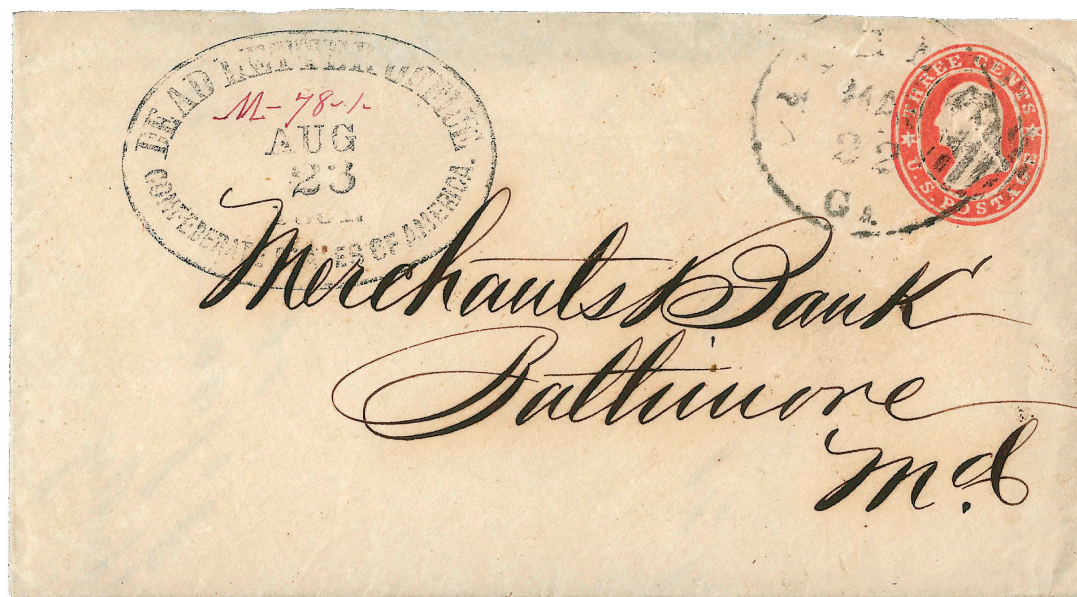 DEAD LETTER OFFICE
M-78-1-
AUG
23
CONFEDERATE STATES OF AMERICA.
GA.
THREE CENTS
U.S. POSTAGE
Merchants Bank
Baltimore
Md.